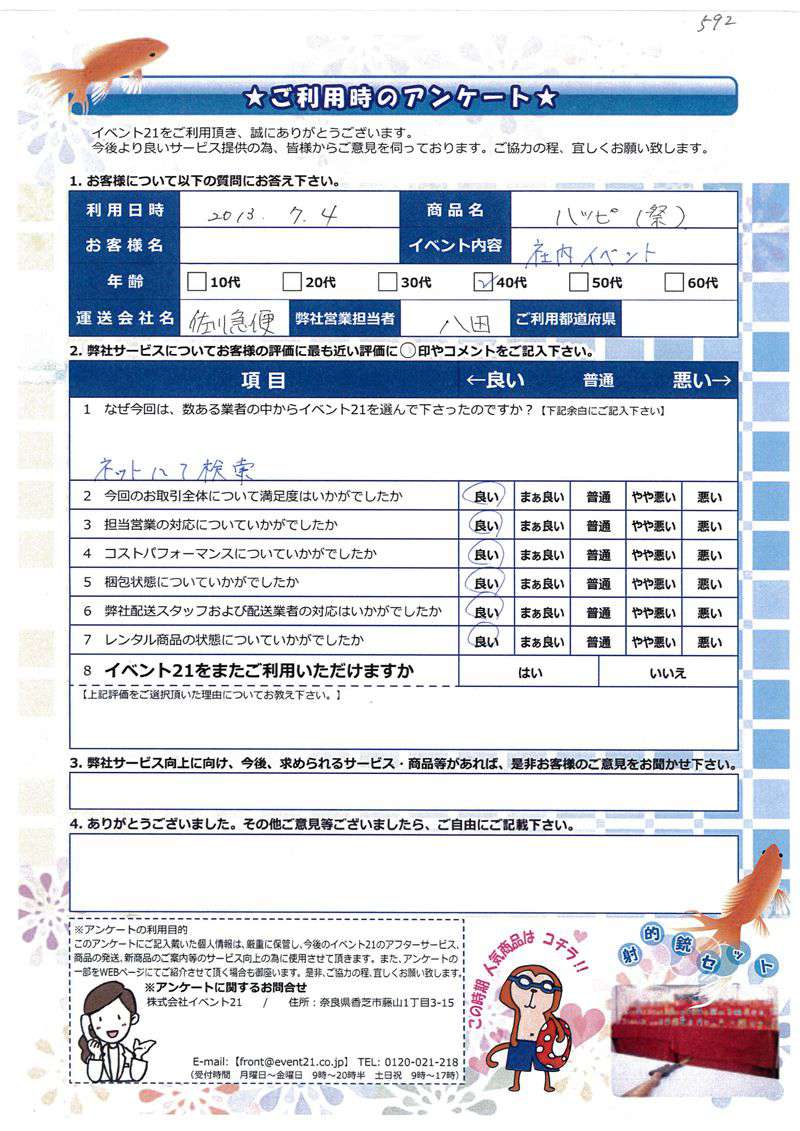 592
★ご利用時のアンケート★
イベント21をご利用頂き、誠にありがとうございます。
今後より良いサービス提供の為、皆様からご意見を伺っております。ご協力の程、宜しくお願い致します。
1. お客様について以下の質問にお答え下さい。
利用日時 2013. 7. 4 商品名 ハッピ(祭)
お客様名 イベント内容 社内イベント
年齢 10代 20代 30代 40代 50代 60代
運送会社名 佐川急便 弊社営業担当者 八田 ご利用都道府県
2. 弊社サービスについてお客様の評価に最も近い評価に○印やコメントをご記入下さい。
項目 ←良い 普通 悪い→
1 なぜ今回は、数ある業者の中からイベント21を選んで下さったのですか?【下記余白にご記入下さい】
ネットにて検索
2 今回のお取引全体について満足度はいかがでしたか 良い まぁ良い 普通 やや悪い 悪い
3 担当営業の対応についていかがでしたか 良い まぁ良い 普通 やや悪い 悪い
4 コストパフォーマンスについていかがでしたか 良い まぁ良い 普通 やや悪い 悪い
5 梱包状態についていかがでしたか 良い まぁ良い 普通 やや悪い 悪い
6 弊社配送スタッフおよび配送業者の対応はいかがでしたか 良い まぁ良い 普通 やや悪い 悪い
7 レンタル商品の状態についていかがでしたか 良い まぁ良い 普通 やや悪い 悪い
8 イベント21をまたご利用いただけますか はい いいえ
【上記評価をご選択頂いた理由についてお教え下さい。】
3. 弊社サービス向上に向け、今後、求められるサービス・商品等があれば、是非お客様のご意見をお聞かせ下さい。
4. ありがとうございました。その他ご意見等ございましたら、ご自由にご記載下さい。
※アンケートの利用目的
このアンケートにご記入戴いた個人情報は、厳重に保管し、今後のイベント21のアフターサービス、
商品の発送、新商品のご案内等のサービス向上の為に使用させて頂きます。また、アンケートの
一部をWEBページにてご紹介させて頂く場合も御座います。是非、ご協力の程、宜しくお願い致します。
※アンケートに関するお問合せ
株式会社イベント21 / 住所:奈良県香芝市藤山1丁目3-15
E-mail:【front@event21.co.jp】 TEL: 0120-021-218
(受付時間 月曜日~金曜日 9時~20時半 土日祝 9時~17時)
この時期人気商品はコチラ!!
射的銃セット